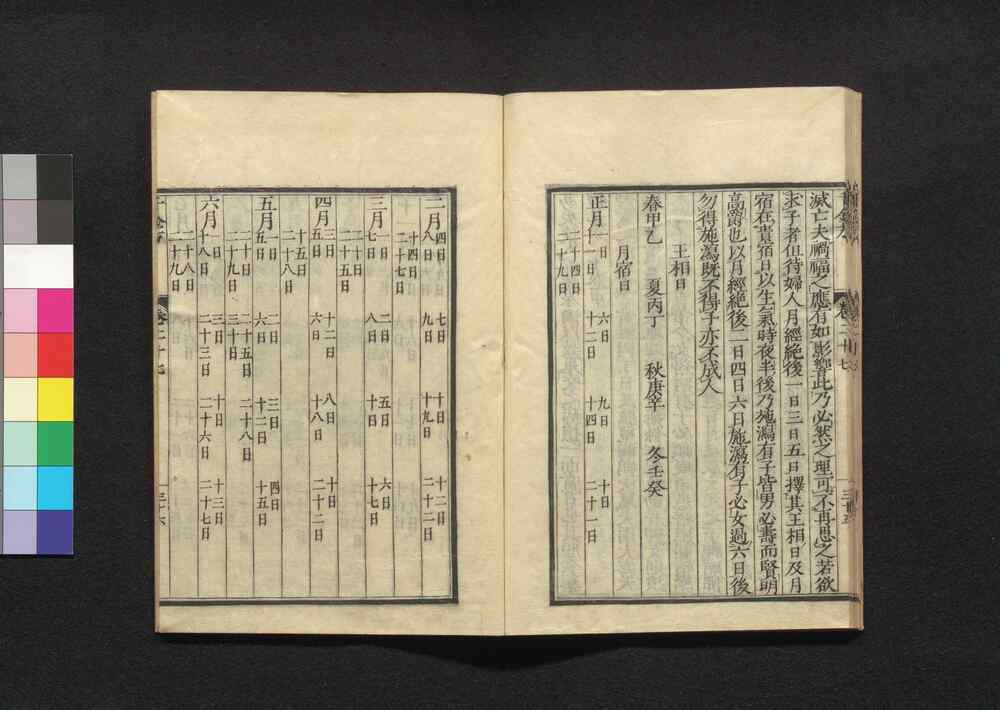 滅亡夫禍福之應有如影響此乃必然之理可不再思之若欲
求子者但待婦人月經絕後一日三日五日擇其王相日及月
宿在貴宿日以生氣時夜半後乃施瀉有子皆男必壽而賢明
高爵也以月經絕後二日四日六日施瀉有子必女過六日後
勿得施瀉既不得子亦不成人
王相日
春甲乙 夏丙丁 秋庚辛 冬壬癸
月宿日
正月 一日 六日 九日 十日
十一日 十二日 十四日 二十一日
二十四日
二十九日
卷二十七
三十五
二月 四日 七日 十日 十二日
八日 九日 十九日 二十二日
十四日
二十七日
三月 一日 二日 五日 六日
七日 八日 十日 十七日
二十日
二十五日
四月 三日 十二日 八日 十日
五日 六日 十八日 二十二日
十五日
二十八日
五月 一日 二日 三日 四日
五日 六日 十二日 十五日
二十日 二十五日 二十八日
二十九日 三十日
六月 一日 三日 十日 十三日
十八日 二十三日 二十六日 二十七日
二十八日
二十九日
卷二十七
三十六